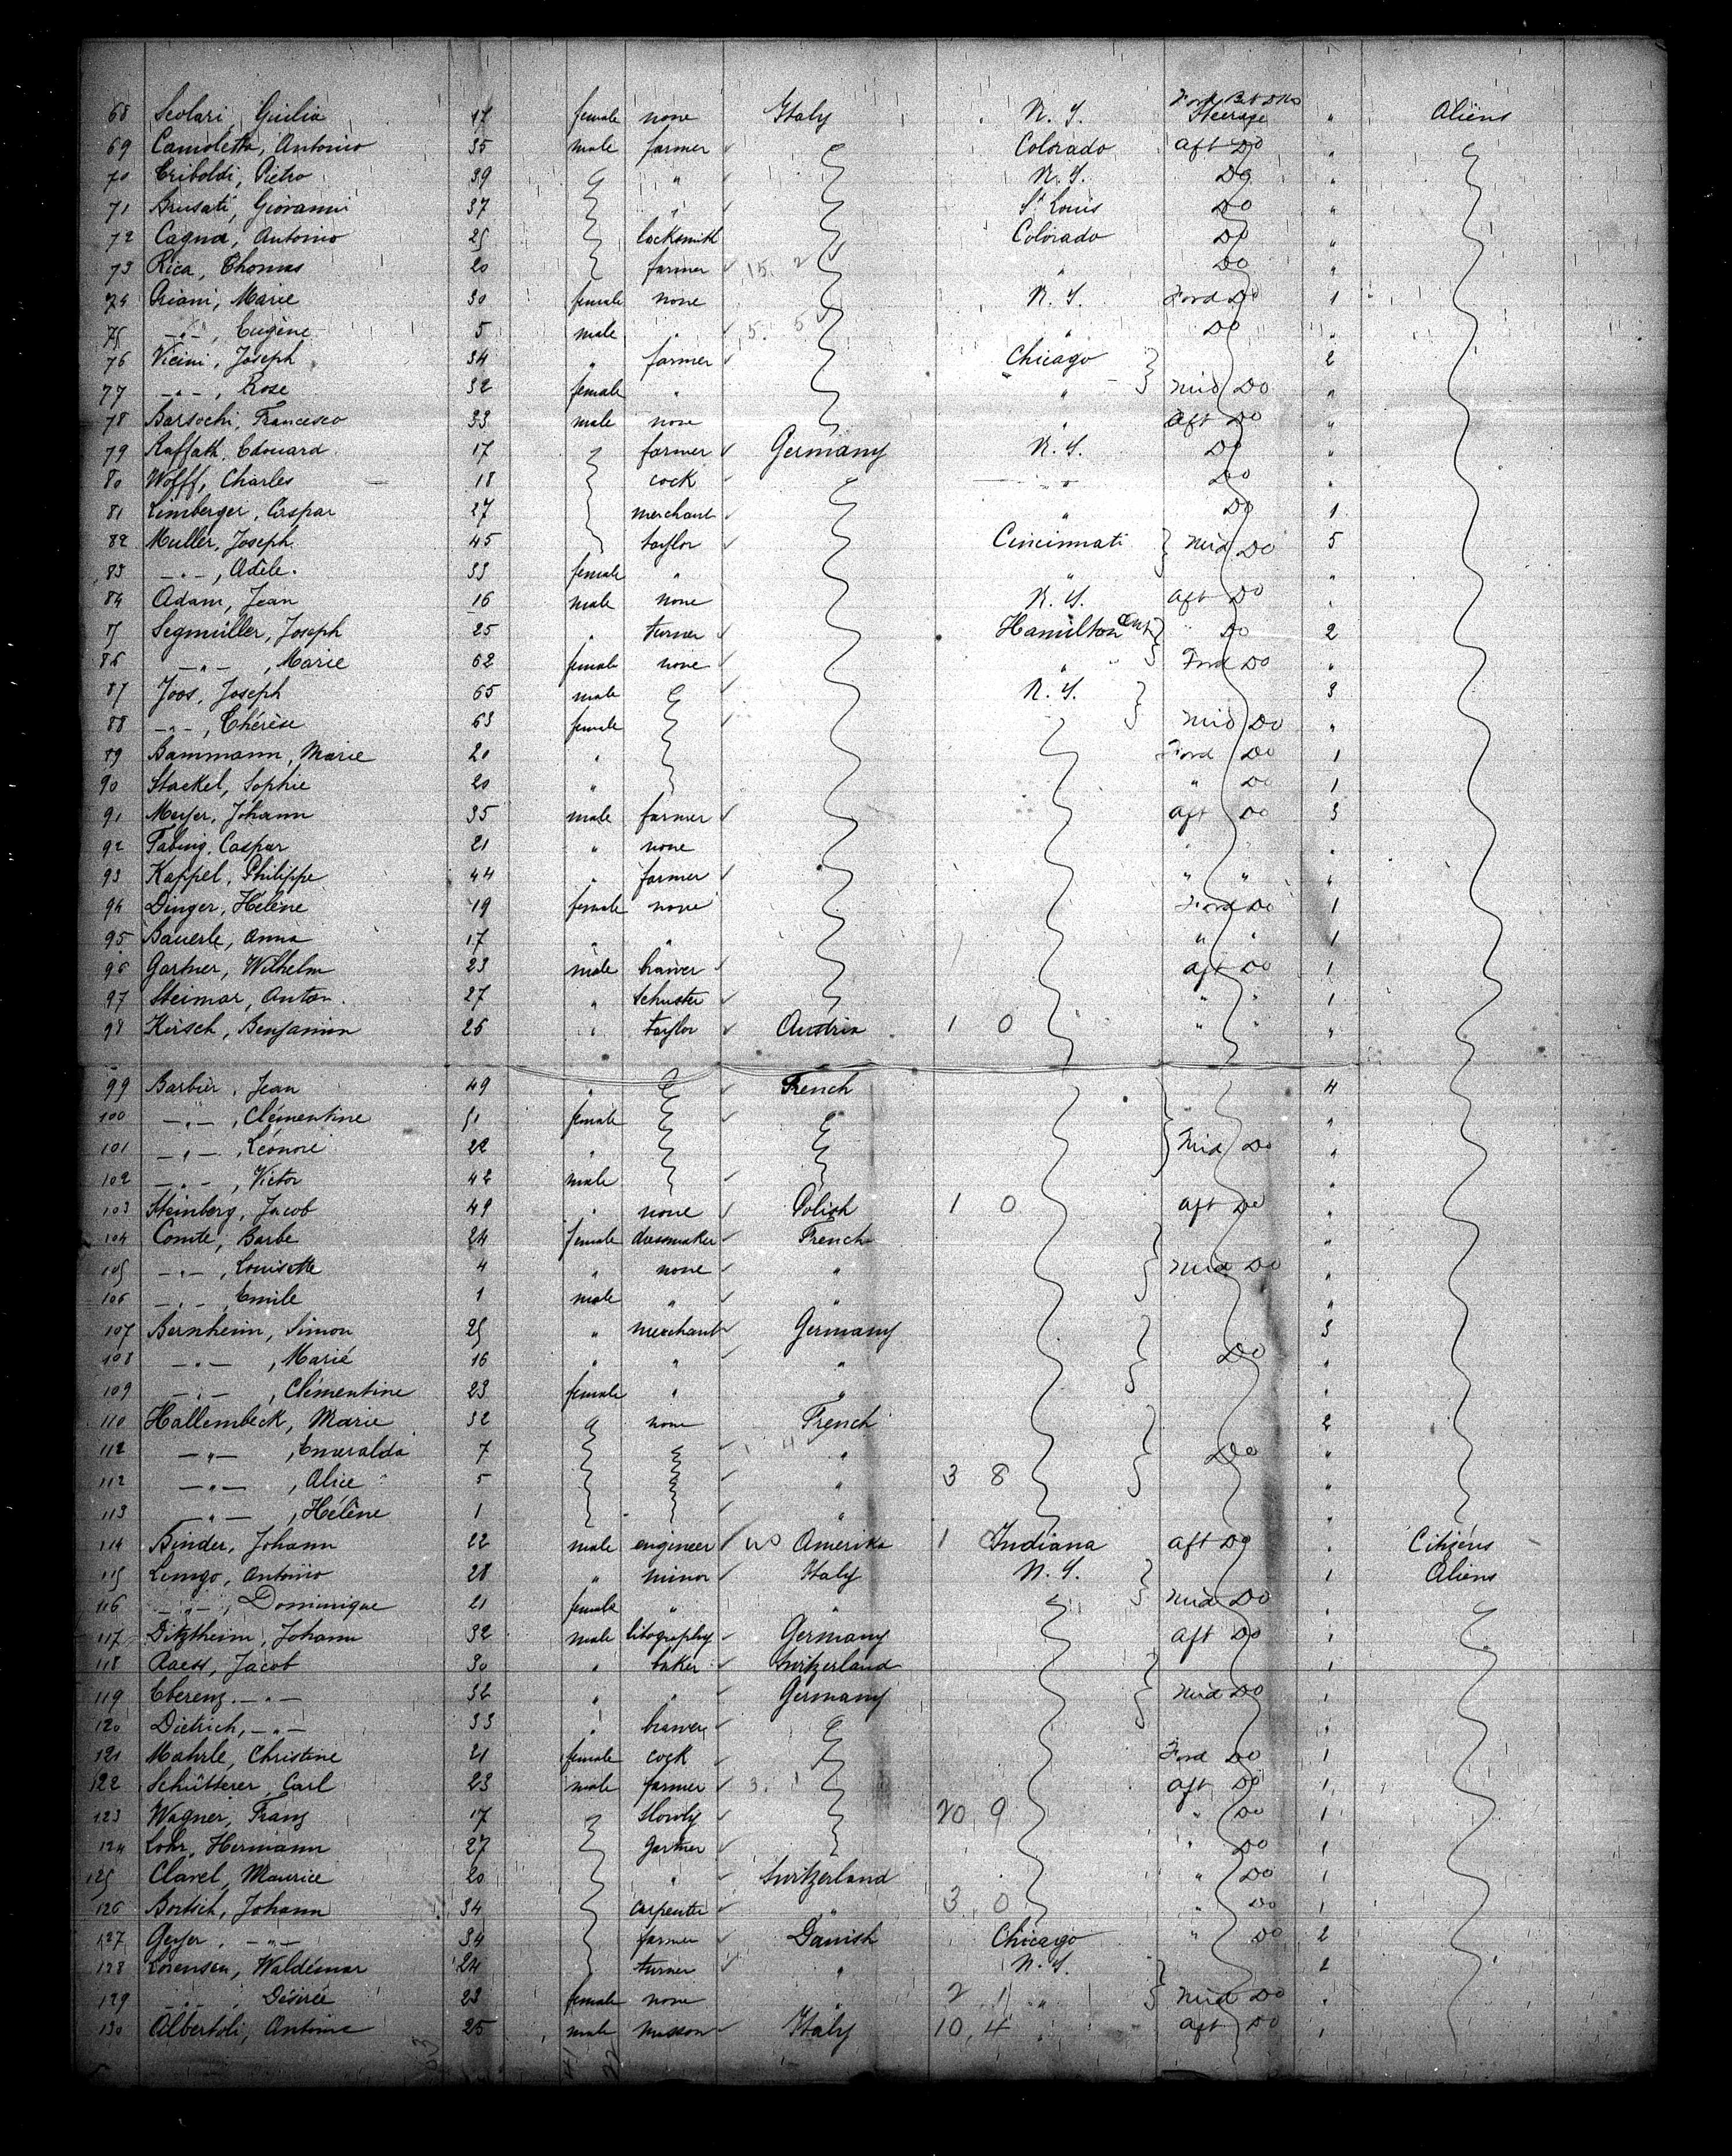 68 Scolari, Giulia 17 female none Italy N. Y. Ford Bet Dks Steerage " Aliens
69 Camoletto, Antonio 35 male farmer Colorado Aft Do "
70 Criboldi, Pietro 39 " N. Y. Do "
71 Brusati, Giovanni 37 " St Louis Do "
72 Cagna, Antonio 25 locksmith Colorado Do "
73 Rica, Thomas 20 farmer 15. 2 " Do "
74 Priani, Marie 30 female none N. Y. Ford Do 1
75 -"-, Eugène 5 male " 5. 5 " Do "
76 Vicini, Joseph 34 " farmer Chicago 2
77 -"-, Rose 32 female " " Mid Do "
78 Barsochi, Francesco 33 male none " Aft Do "
79 Raffath, Edouard 17 farmer Germany N. Y. Do "
80 Wolff, Charles 18 cock " Do "
81 Limberger, Caspar 27 merchant " Do 1
82 Muller, Joseph 45 taylor Cincinnati Mid Do 5
83 -"-, Adèle. 33 female " " "
84 Adam, Jean 16 male none N. Y. Aft Do "
85 Segmüller, Joseph 25 " turner Hamilton Ont " Do 2
86 -"-, Marie 62 female none " Ford Do "
87 Joos, Joseph 65 male N. Y. 3
88 -"-, Thérèse 63 female Mid Do "
89 Bammann, Marie 20 " Ford Do 1
90 Stackel, Sophie 20 " " Do 1
91 Meyer, Johann 35 male farmer Aft Do 3
92 Tabing, Caspar 21 " none " " "
93 Kappel, Philippe 44 " farmer " " "
94 Dinger, Hélène 19 female none Ford Do 1
95 Bauerle, Anna 17 " " " " 1
96 Gartner, Wilhelm 23 male brawer Aft Do 1
97 Steimar, Anton. 27 " Schuster " " 1
98 Hirsch, Benjamin 26 " taylor Austria 1 0 " " "
99 Barbier, Jean 49 " French 4
100 -"-, Clémentine 51 female "
101 -"-, Léonore 22 " Mid Do "
102 -"-, Victor 42 male "
103 Steinberg, Jacob 49 " none Polish 1 0 Aft Do "
104 Comte, Barbe 24 female dressmaker French "
105 -"-, Louisette 4 " none " Mid Do "
106 -"-, Emile 1 male " " "
107 Bernheim, Simon 25 " merchant Germany 3
108 -"-, Marie 16 " " " Do "
109 -"-, Clémentine 23 female " " "
110 Hallembeck, Marie 32 none French 2
112 -"-, Emeralda 7 " Do "
112 -"-, Alice 5 " 3 8 "
113 -"-, Hélène 1 " "
114 Binder, Johann 22 male engineer US Amerika 1 Indiana Aft Do " Citizens
115 Lungo, Antoïno 28 " minor Italy N. Y. 1 Aliens
116 -"-, Dominique 21 female " " Mid Do "
117 Ditztheim, Johann 32 male litography Germany Aft Do 1
118 Raess, Jacob 30 " baker Switzerland 1
119 Eberenz -"- 32 " " Germany Mid Do 1
120 Dietrich, -"- 33 " brawer 1
121 Mahrle, Christine 21 female cock Ford Do 1
122 Schütterer, Carl 23 male farmer 3. 1 Aft Do 1
123 Wagner, Franz 17 20 9 " Do 1
124 Lohr, Hermann 27 gartner " Do 1
125 Clavel, Maurice 20 " Switzerland " Do 1
126 Bortsch, Johann 34 carpenter " 3 0 " Do 1
127 Geyer, -"- 34 farmer Danish Chicago " Do 2
128 Lorensen, Waldémar 24 turner " N. Y. 2
129 -"- Désirée 23 female none " 2 1 " Mid Do "
130 Albertoli, Antoine 25 male masson Italy 10, 4 Aft Do 1